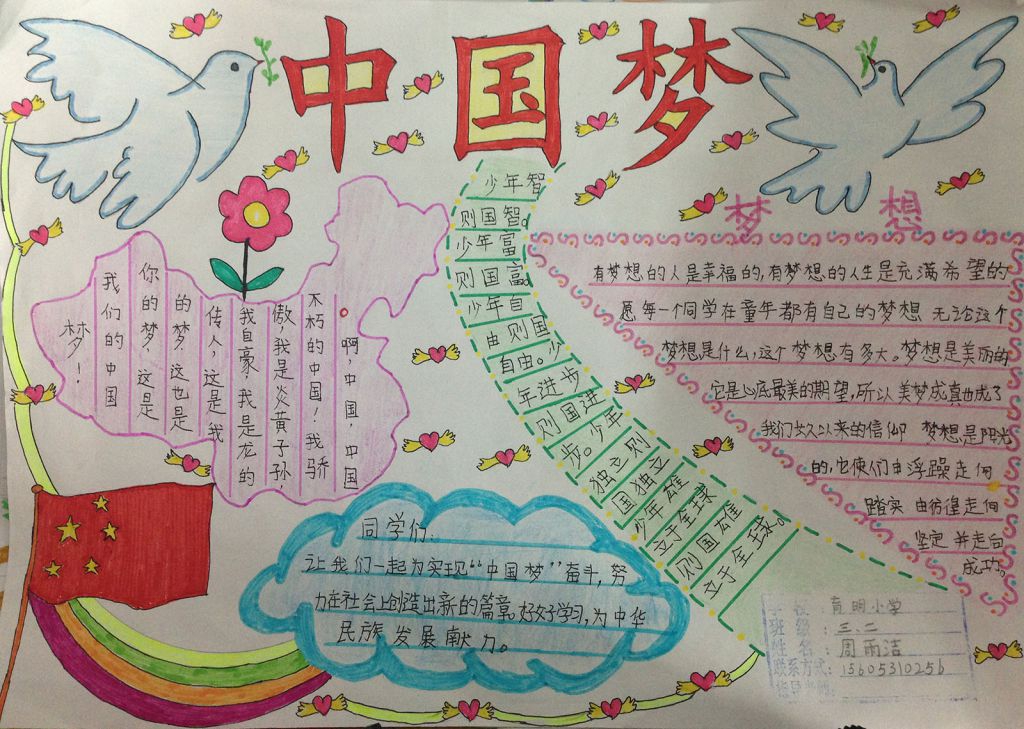 中国梦
啊，中国，中国
不朽的中国！我骄
傲，我是炎黄子孙，
我自豪，我是龙的
传人，这是我
的梦，这也是
你的梦，这是
我们的中国
梦！
少年智
则国智。
少年富
则国富。
少年自
由则国
自由。少
年进步
则国进
步。少年
独立则
国独立
少年雄
立于全球
则国雄
立于全球。
梦想
有梦想的人是幸福的，有梦想的人生是充满希望的
愿每一个同学在童年都有自己的梦想 无论这个
梦想是什么，这个梦想有多大。梦想是美丽的
它是心底最美的期望，所以美梦成真也成了
我们长久以来的信仰 梦想是阳光
的，它使们由浮躁走向
踏实 由彷徨走向
坚定 并走向
成功。
同学们：
让我们一起为实现“中国梦”奋斗，努
力在社会上创造出新的篇章。好好学习，为中华
民族发展献力。
学校：育明小学
班级：三、二
姓名：周雨洁
联系方式：15605310256